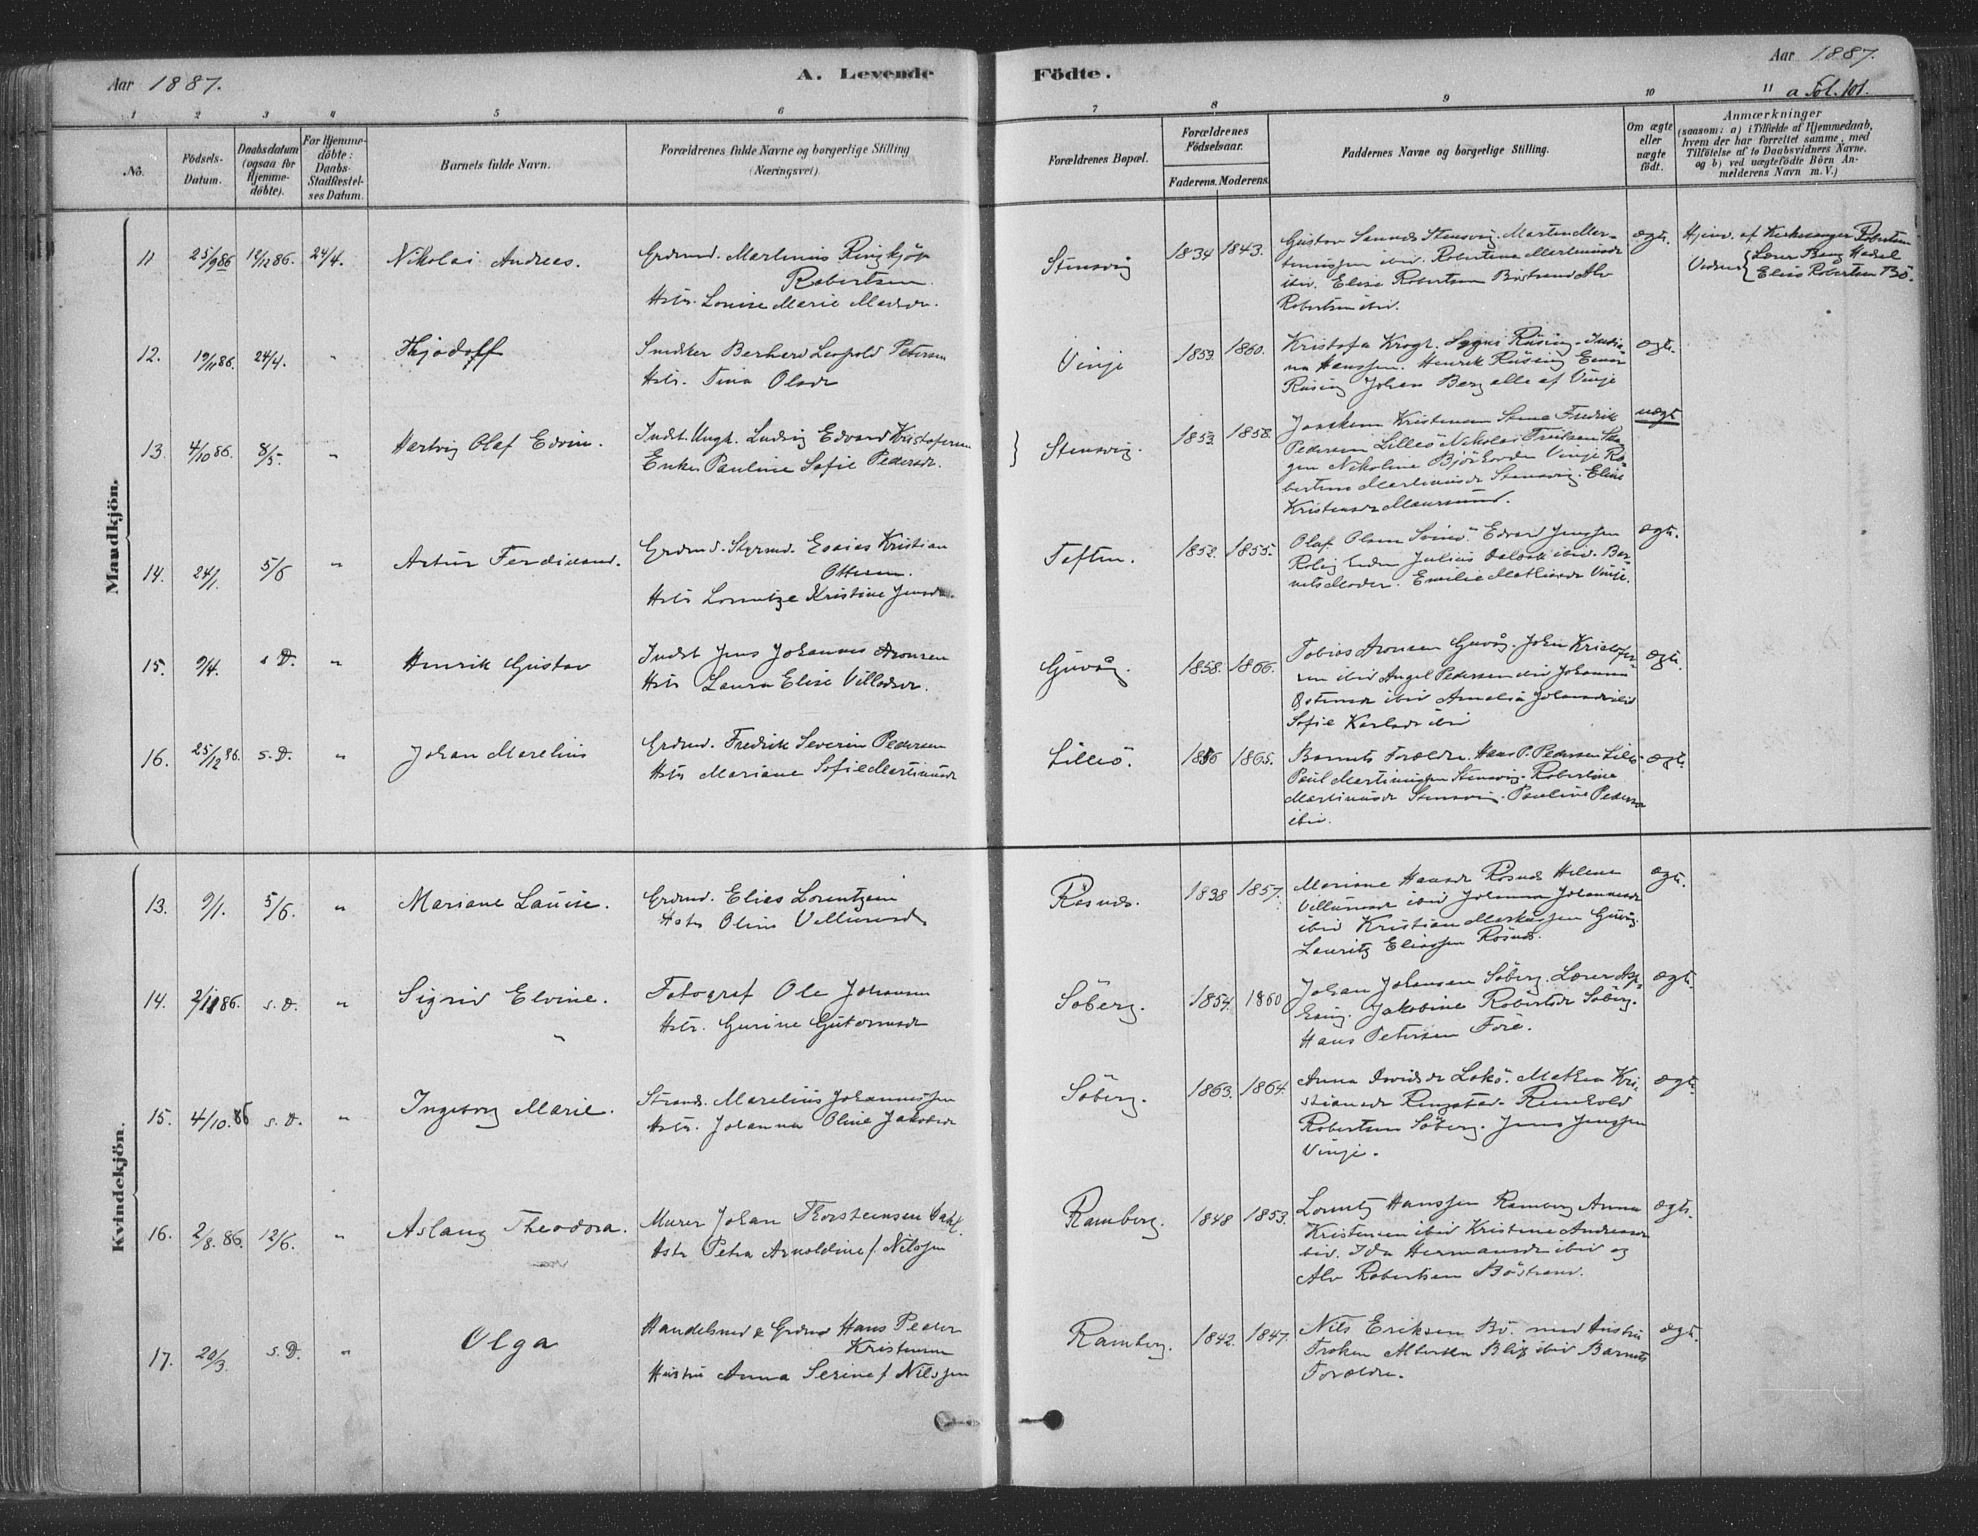 Aar 1887.
A. Levende
Födte.
Aar 1887.
a Fol. 101.
1 2 3 4 5 6 7 8 9 10 11
No.
Födsels-
Datum.
Daabsdatum
(ogsaa for
Hjemme-
döbte).
For Hjemme-
döbte:
Daabs-
Stadfæstel-
ses Datum.
Barnets fulde Navn.
Forældrenes fulde Navne og borgerlige Stilling
(Næringsvei).
Forældrenes Bopæl.
Forældrenes
Födselsaar.
Faderens. Moderens.
Faddernes Navne og borgerlige Stilling.
Om ægte
eller
uægte
födt.
Anmærkninger
(saasom: a) i Tilfælde af Hjemmedaab,
hvem der har forrettet samme, med
Tilföielse af to Daabsvidners Navne.
og b) ved uægtefödte Börn An-
melderens Navn m. V.)
Mandkjön.
11 25/9 86 12/12 86. 24/4. Nikolai Andreas.
Grdmd. Martinus Ringkjøp
Robertsen.
Hstr. Louise Marie Madsdr.
Stensvig 1834 1843.
ibid. Elise Robertsen Böstrand Alv
Robertsen ibid.
ægte.
Hjemd. af Kirkesanger Robertsen
Elias Robertsen Bö.
12. 19/11 86. 24/4. " Thjodolf
Snedker Berhard Leopold Petersen
Hstr. Tina Olsdr
Vinje 1853. 1860.
Kristofa Krogh. Signe Rüsing.
na Hanssen. Henrik Rüsing Einar
Rüsing Johan Berg alle af Vinje
ægte.
13. 4/10 86. 8/5. " Hartvig Olaf Edvin.
Indst. Ungk. Ludvig Edvard Kristofersen
Enke Pauline Sofie Pedersdr.
} Stensvig. 1853 1858.
Joachem Kristensen Fredrik
Pedersen Lilleö Nikolai
gen Nikoline Vinje Ro-
bertine Martinusdr Stensvig. Eline
Kristensdr Maursund.
uægte
14. 24/1. 5/6 " Artur Ferdinand.
Grdmd. Styrmd. Esaias Kristian
Ottesen.
Hstr Lorentze Kristine Jensdr.
Toften. 1852. 1855.
Olaf Olsen Svinö Edvard Jenssen
Julius ibid. Bar-
nets Moder. Emelie Mathisdr Vinje.
ægte.
15. 9/4. s. D. " Henrik Gustav
Indst Jens Johannes Aronsen
Hstr Laura Elise Villadsdr.
Guvåg. 1858. 1866.
Tobias Aronsen Guvåg. Johan Kristofer-
sen ibid Angel Pedersen ibid Johanna
ibid Amalia ibid
Sofie Karlsdr ibid
ægte.
16. 25/12 86. s. D. " Johan Marelius
Grdmd. Fredrik Severin Pedersen
Hstr Mariane Sofie Martinusdr
Lilleö. 1856 1865.
Barnets Forældre. Hans P. Pedersen Lille-
Paul Martinussen Stensvig. Robertine
Martinusdr Stensvig. Pauline Pedersen
ibid.
ægte.
Kvindekjön.
13. 9/1. 5/6. " Mariane Lauise.
Grdmd. Elias Lorentzen
Hstr Oline Villumsdr
Rösnæs. 1838 1857.
Mariane Hansdr Rösnæs Helene
Villumsdr ibid Johanna Johannesdr
ibid Kristian Markussen Guvåg.
Lauritz Eliassen Rösnæs.
ægte.
14. 2/11 86. s. D. " Sigrid Elvine.
Fotograf Ole Johansen
Hstr. Gurine Guttormsdr
Söberg. 1854. 1860
Johan Johansen Söberg. Lærer
Jakobine Robertsdr Söberg.
Hans Petersen Före.
ægte.
15. 4/10. 86 s. D. " Ingeborg Marie.
Strands. Marelius Johannessen
Hstr. Johanna Oline Jakobsdr
Söberg. 1863. 1864.
Anna Davidsdr Mathea Kri-
stiansdr Ringstad. Reinhold
Robertsen Söberg. Jens Jenssen
Vinje.
ægte.
16. 2/8. 86. 12/6. " Aslaug Theodora.
Murer Johan Thorsteinsen Dahl.
Hstr Petra Arnoldine f. Nilssen
Ramberg. 1848 1853.
Lorentz Hanssen Ramberg Anna
Kristensen ibid Kristine Andreasdr
ibid. Ida Hermansdr ibid og
Alv Robertsen Böstrand.
ægte.
17. 20/3 s. D. " Olga
Handelsmd & Grdmd Hans Peder
Kristensen
Hustru Anna Serine f. Nilssen
Ramberg. 1842. 1847.
Nils Eriksen Bö. med Hustru
Fröken Albertha Blix ibid Barnets
Forældre.
ægte.